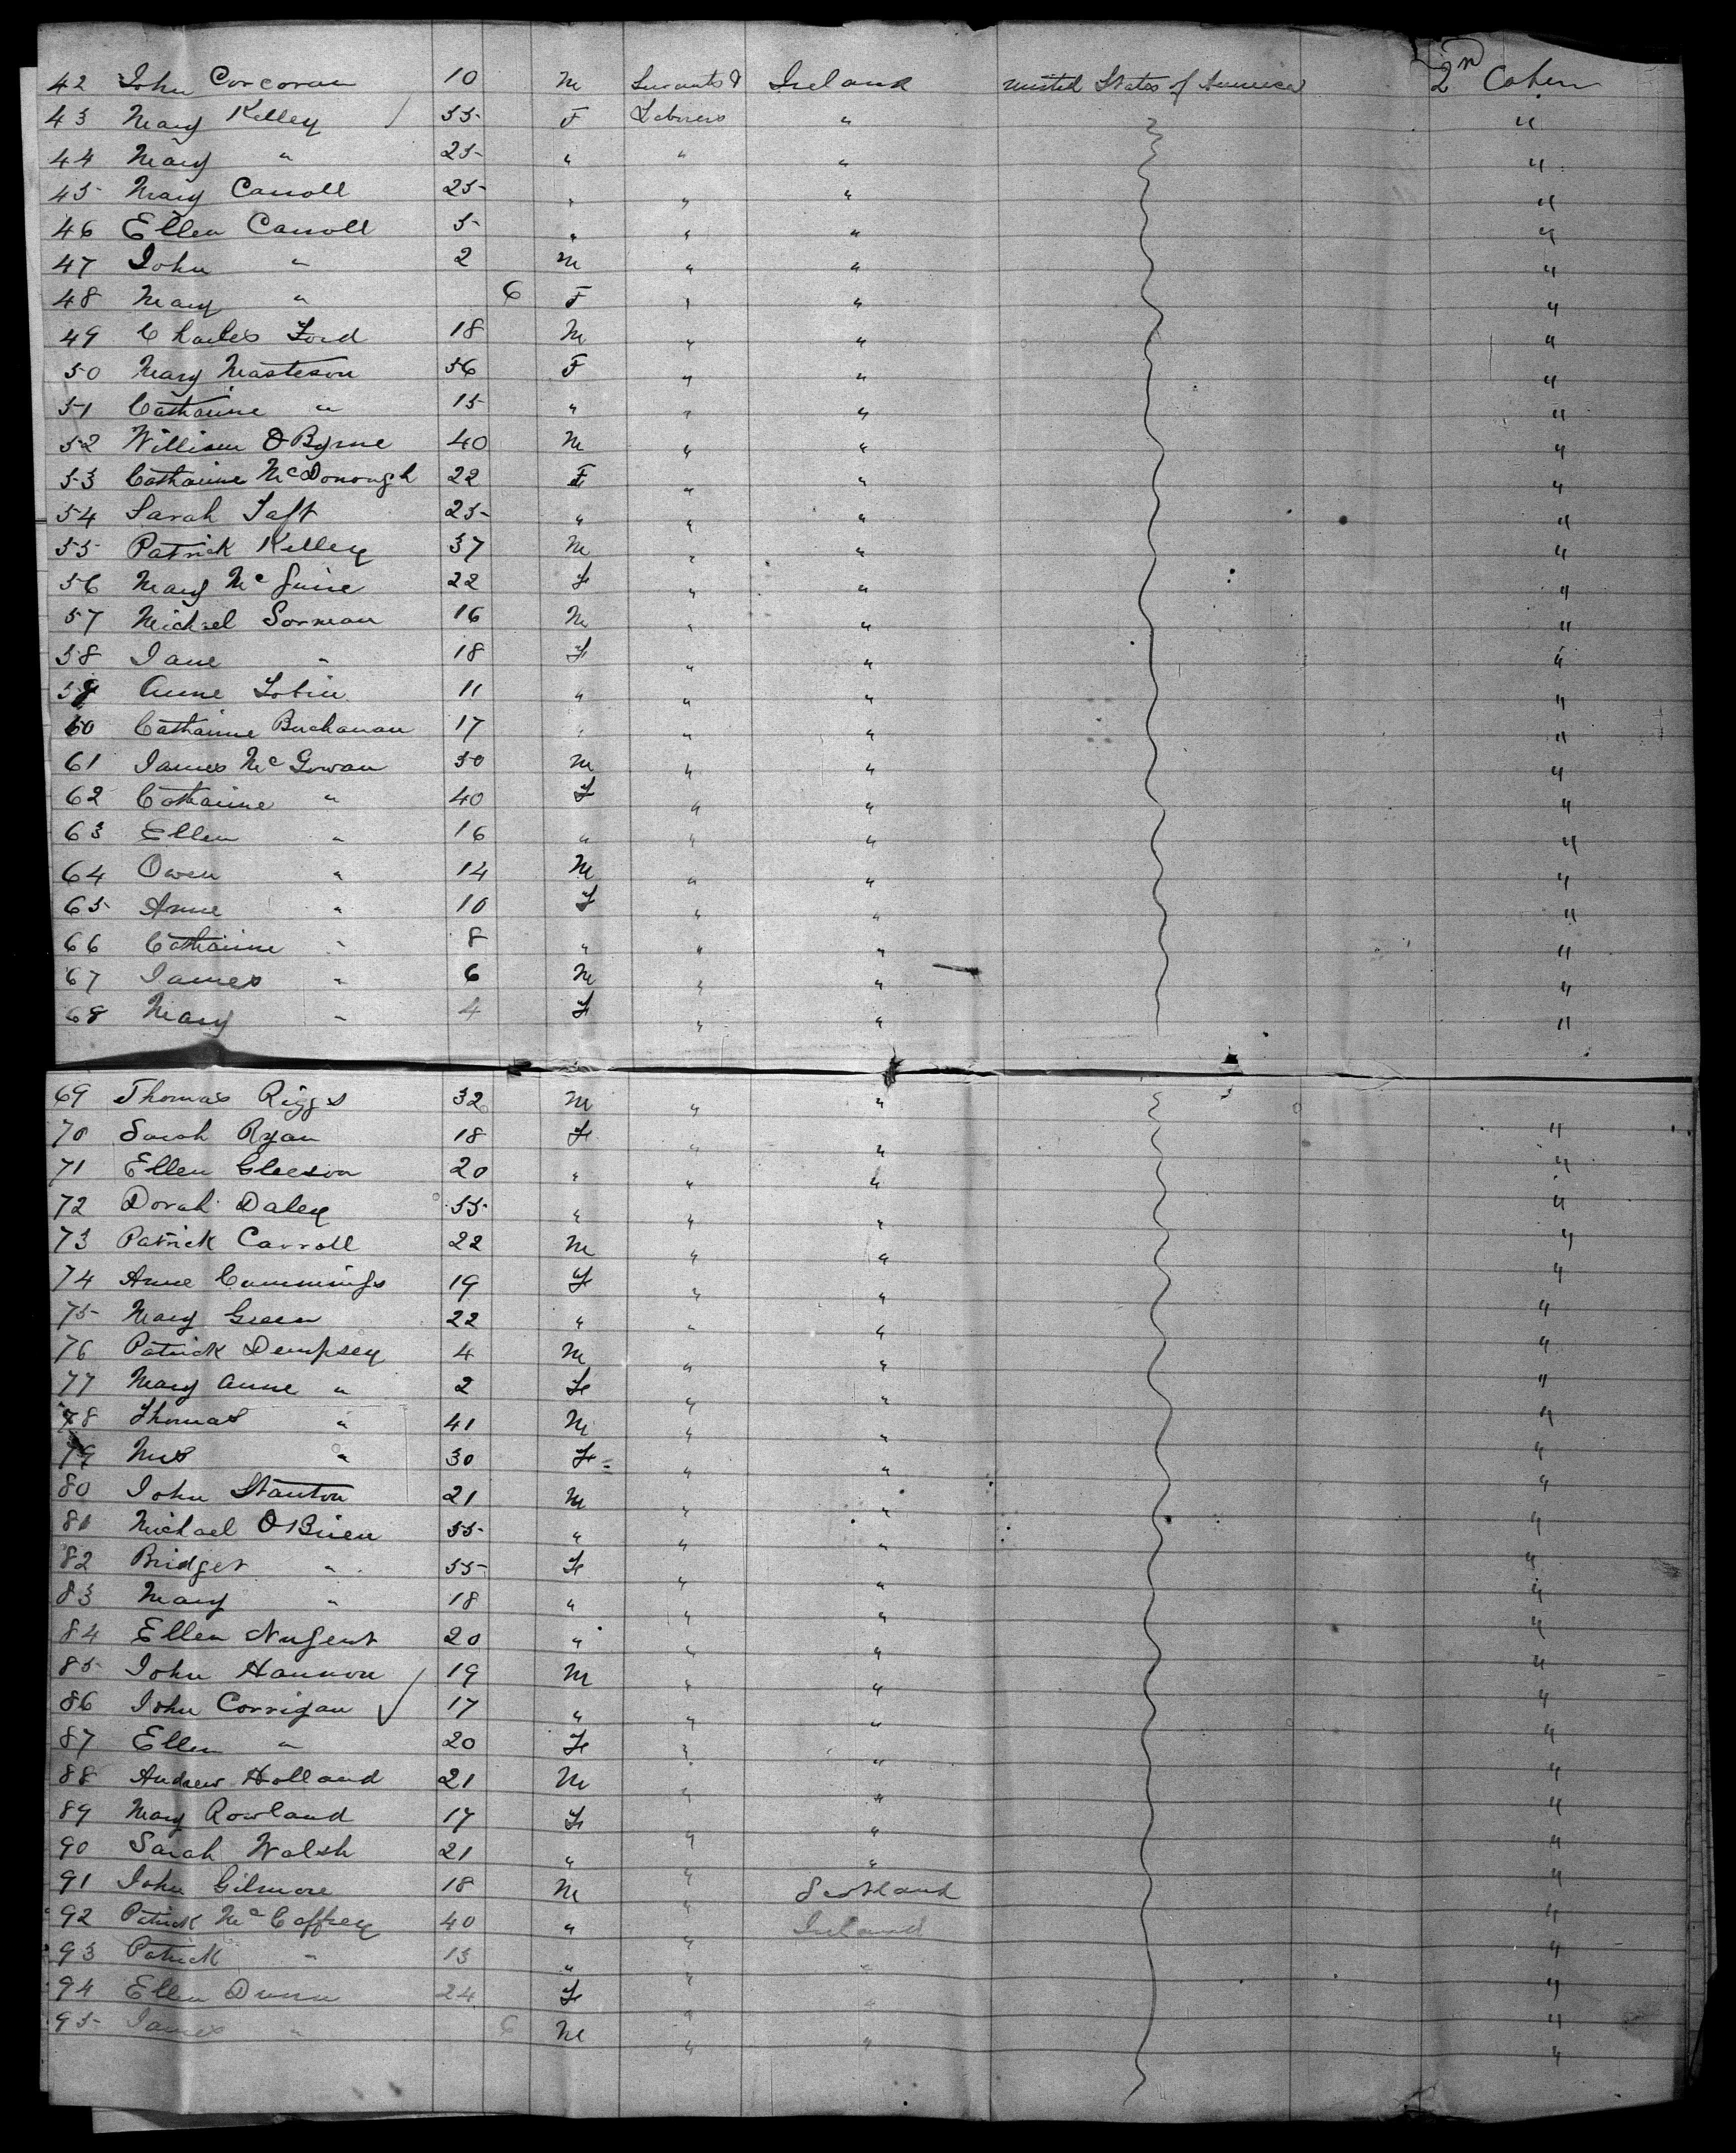 42 John Corcoran 10 M Servants & Ireland United States of America 2nd Caben
43 Mary Kelley / 55 F Laborers " "
44 Mary " 25 " " " "
45 Mary Carroll 25 " " " "
46 Ellen Carroll 5 " " " "
47 John " 2 M " " "
48 Mary " 6 F " " "
49 Charles Ford 18 M " " "
50 Mary Masteson 56 F " " "
51 Catharine " 15 " " " "
52 William O Byrne 40 M " " "
53 Catharine McDonough 22 F " " "
54 Sarah Taft 25 " " " "
55 Patrick Kelley 37 M " " "
56 Mary McGuire 22 F " " "
57 Michael Gorman 16 M " " "
58 Jane " 18 F " " "
59 Anne Tobin 11 " " " "
60 Catharine Buchanan 17 " " " "
61 James McGowan 50 M " " "
62 Catharine " 40 F " " "
63 Ellen " 16 " " " "
64 Owen " 14 M " " "
65 Anne " 10 F " " "
66 Catharine " 8 " " " "
67 James " 6 M " " "
68 Mary " 4 F " " "
69 Thomas Riggs 32 M " "
70 Sarah Ryan 18 F " " "
71 Ellen Gleeson 20 " " " "
72 Dorah Daley 55 " " " "
73 Patrick Carroll 22 M " " "
74 Anne Cummings 19 F " " "
75 Mary Green 22 " " " "
76 Patrick Dempsey 4 M " " "
77 Mary Anne " 2 F " " "
78 Thomas " 41 M " " "
79 Mrs " 30 F " " "
80 John Stanton 21 M " " "
81 Michael O Brien 55 " " " "
82 Bridget " 55 F " " "
83 Mary " 18 " " " "
84 Ellen Nugent 20 " " " "
85 John Hannon / 19 M " " "
86 John Corrigan ✓ 17 " " " "
87 Ellen " 20 F " " "
88 Andrew Holland 21 M " " "
89 Mary Rowland 17 F " " "
90 Sarah Walsh 21 " " " "
91 John Gilmore 18 M " Scotland "
92 Patrick McCaffrey 40 " " Ireland "
93 Patrick " 13 " " " "
94 Ellen Dunn 24 F " " "
95 James " 6 M " " "